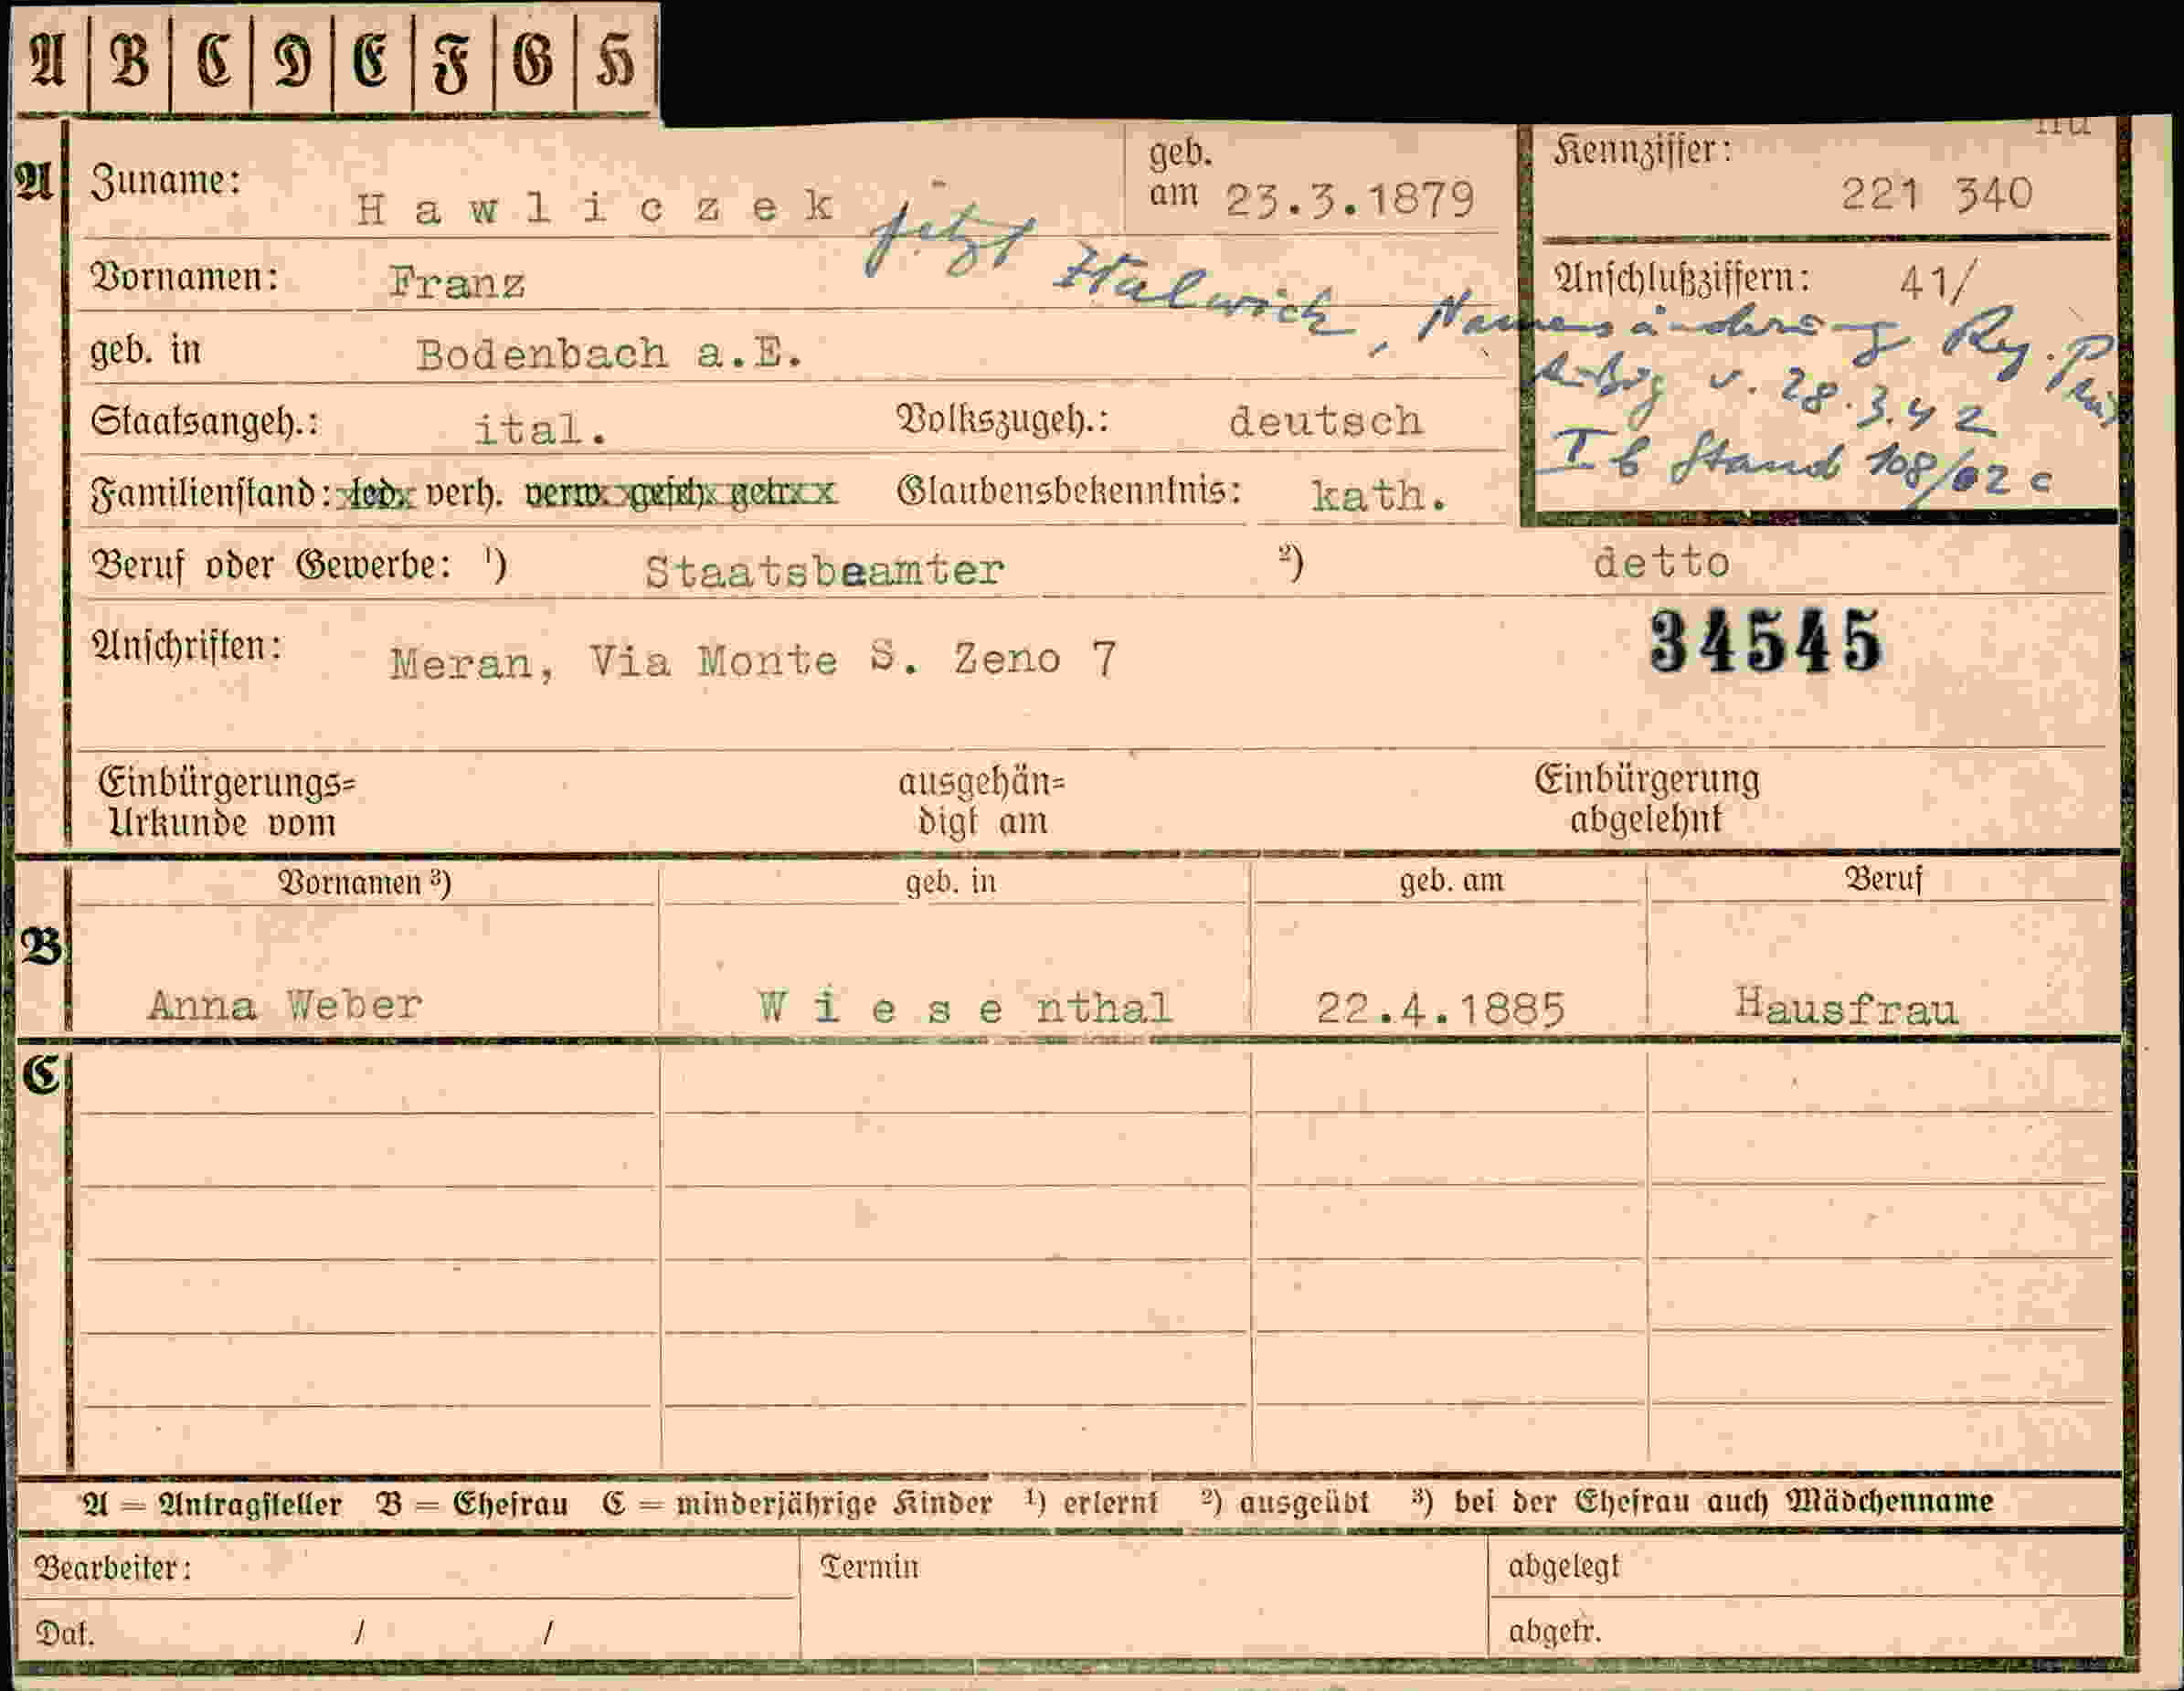 A B C D E F G H
A Zuname: Hawliczek jetzt Halwich, Namensänderung Reg. Präs
v. 28.3.42
I b Stand 108/02 c
geb. am 23.3.1879
Kennziffer: 221 340
Vornamen: Franz
Anschlußziffern: 41/
geb. in Bodenbach a.E.
Staatsangeh.: ital. Volkszugeh.: deutsch
Familienstand: led. verh. verw. gesch. getr. Glaubensbekenntnis: kath.
Beruf oder Gewerbe: ¹) Staatsbeamter ²) detto
34545
Anschriften: Meran, Via Monte S. Zeno 7
Einbürgerungs= ausgehän= Einbürgerung
Urkunde vom digt am abgelehnt
Vornamen ³) geb. in geb. am Beruf
B
Anna Weber Wiesenthal 22.4.1885 Hausfrau
C
A = Antragsteller B = Ehefrau C = minderjährige Kinder ¹) erlernt ²) ausgeübt ³) bei der Ehefrau auch Mädchenname
Bearbeiter: Termin abgelegt
Dat. / / abgetr.